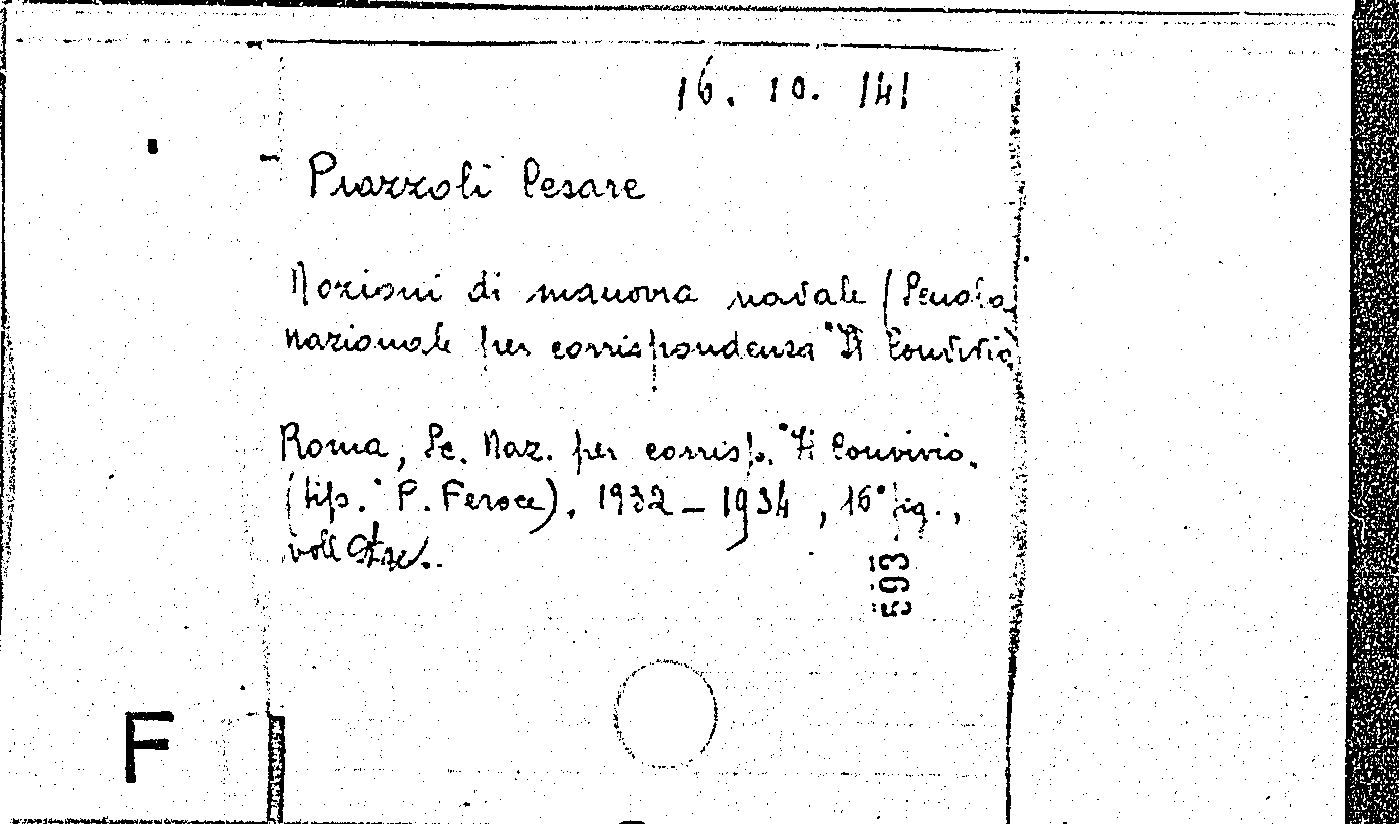 16. 10. 141
Piazzoli Cesare
Nozioni di manovra navale (Scuola
nazionale per corrispondenza "Il Convivio"
Roma, Sc. Naz. per corrisp. "Il Convivio.
(tip. P. Feroce). 1932 - 1934, 16° fig.,
voll
593
F